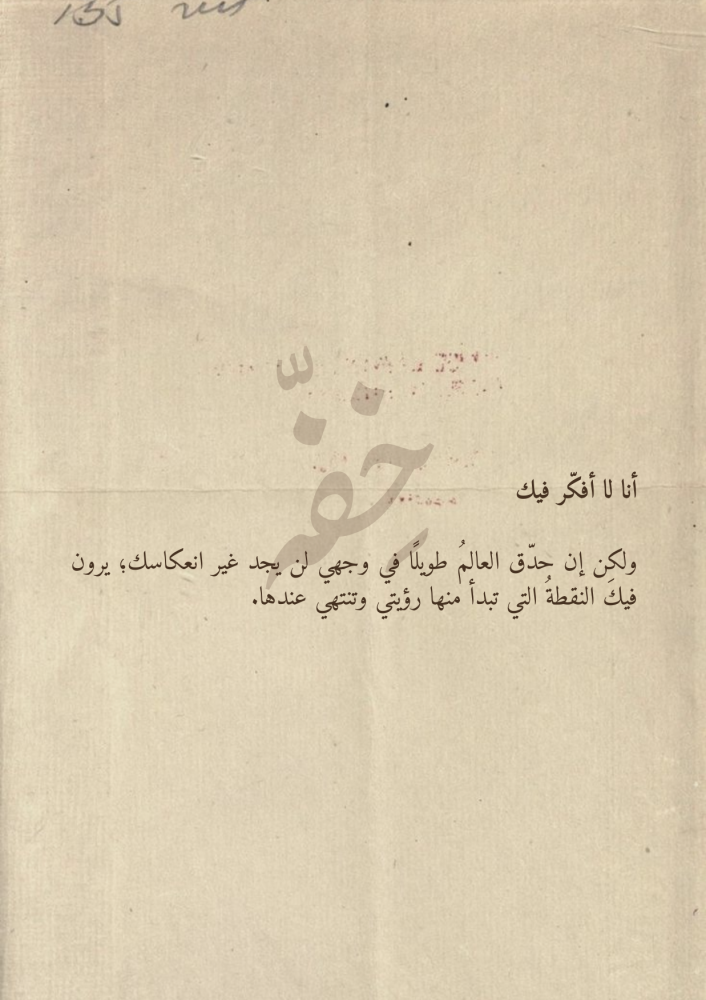 خفّ
أنا لا أفكّر فيك
ولكن إن حدّق العالمُ طويلًا في وجهي لن يجد غير انعكاسك؛ يرون
فيكَ النقطةُ التي تبدأ منها رؤيتي وتنتهي عندها.